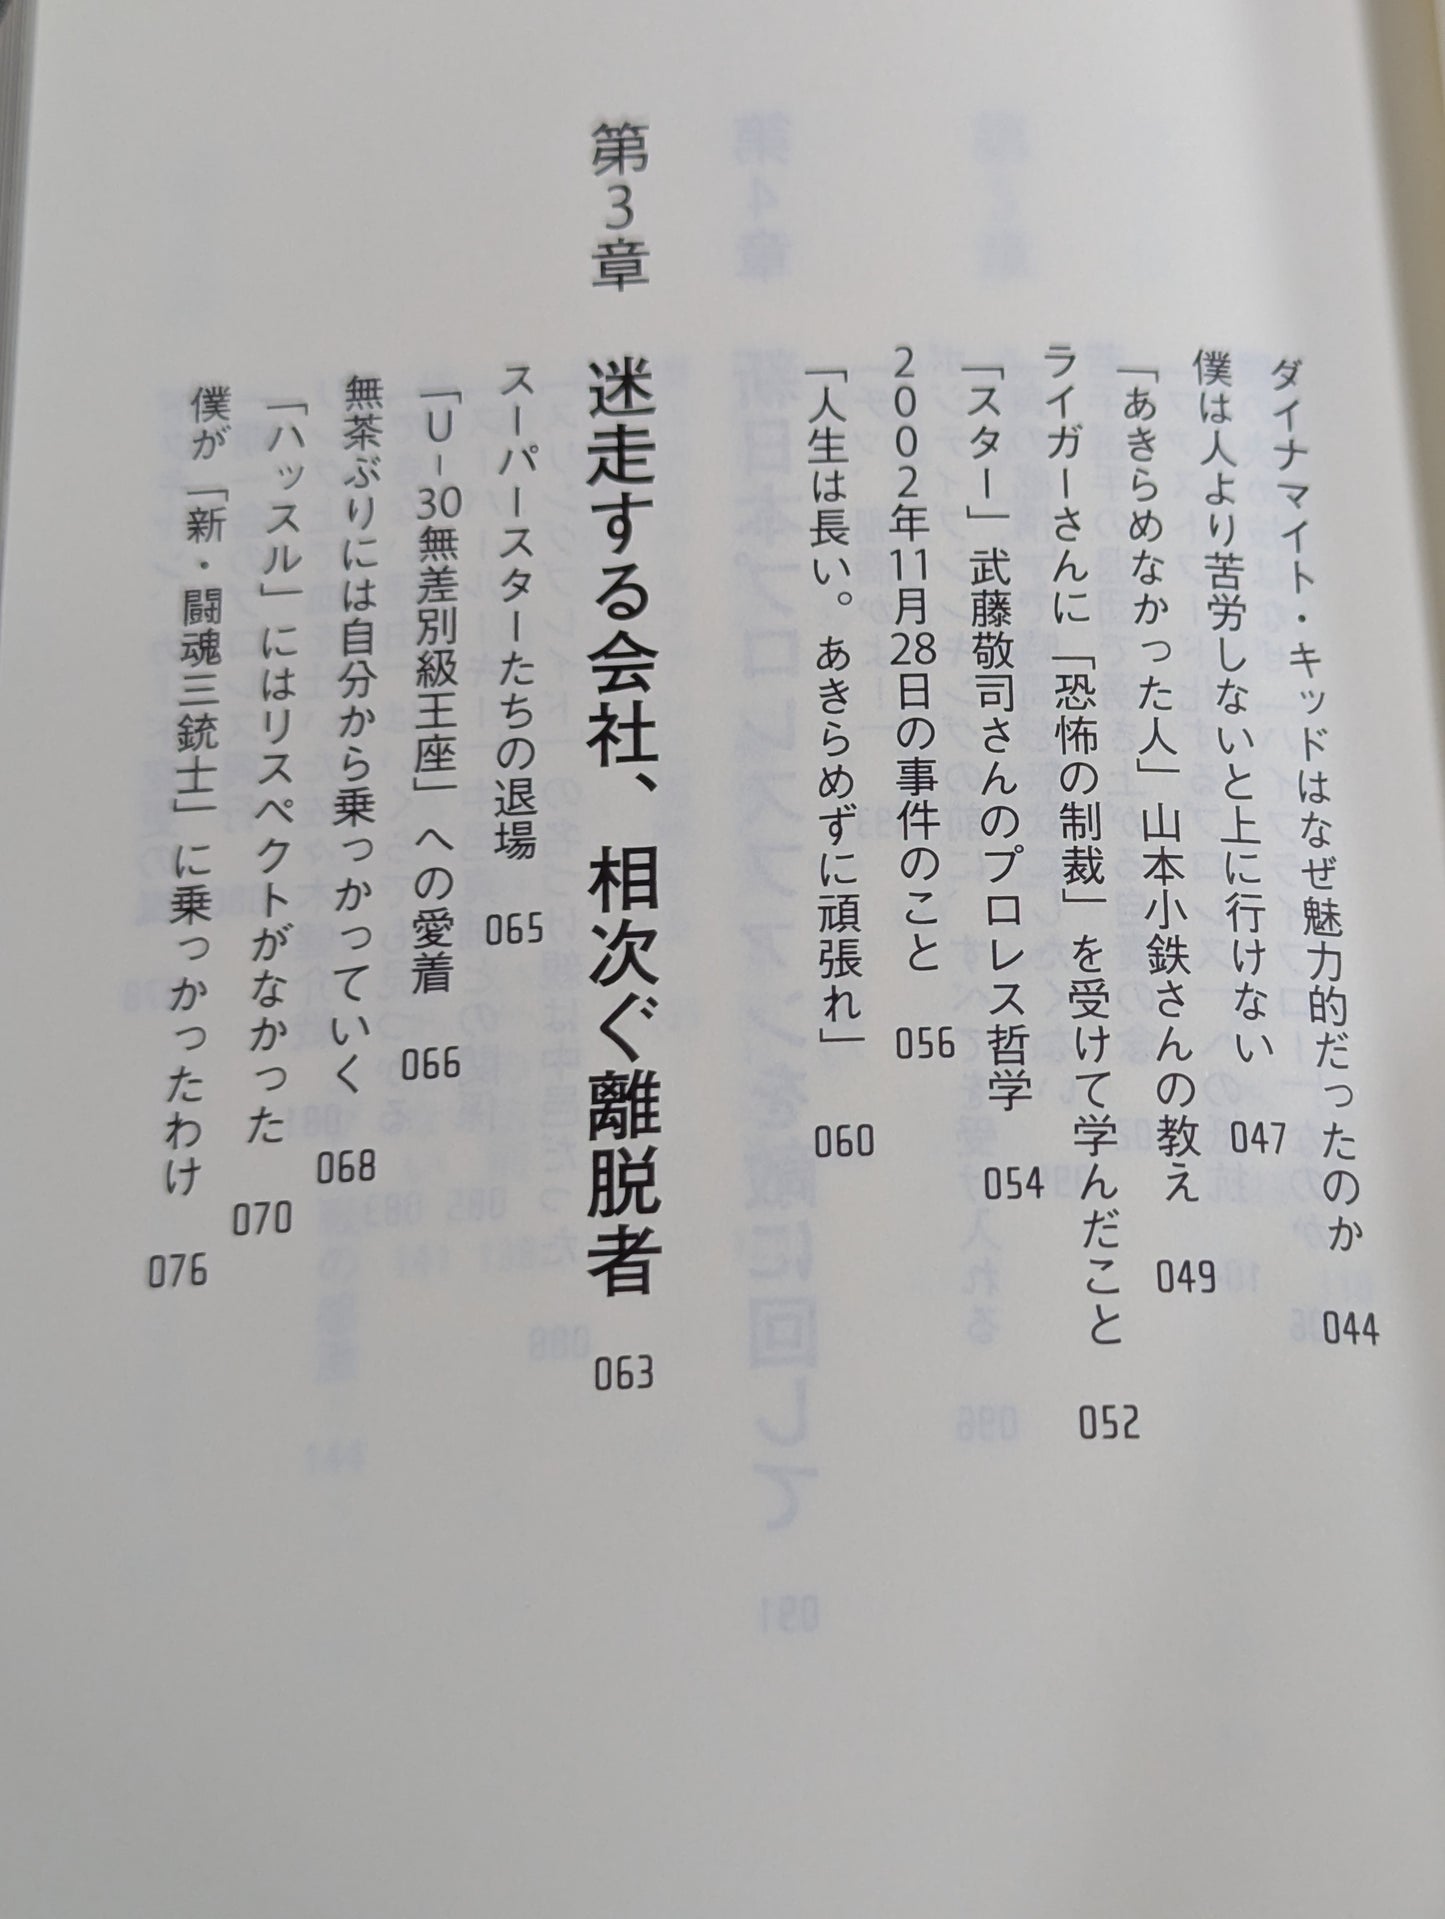 ダイナマイト・キッドはなぜ魅力的だったのか 044
僕は人より苦労しないと上に行けない 047
「あきらめなかった人」山本小鉄さんの教え 049
ライガーさんに「恐怖の制裁」を受けて学んだこと 052
「スター」武藤敬司さんのプロレス哲学 054
2002年11月28日の事件のこと 056
「人生は長い。あきらめずに頑張れ」 060
第3章 迷走する会社、相次ぐ離脱者 063
スーパースターたちの退場 065
「U-30無差別級王座」への愛着 066
無茶ぶりには自分から乗っかっていく 068
「ハッスル」にはリスペクトがなかった 070
僕が「新・闘魂三銃士」に乗っかったわけ 076